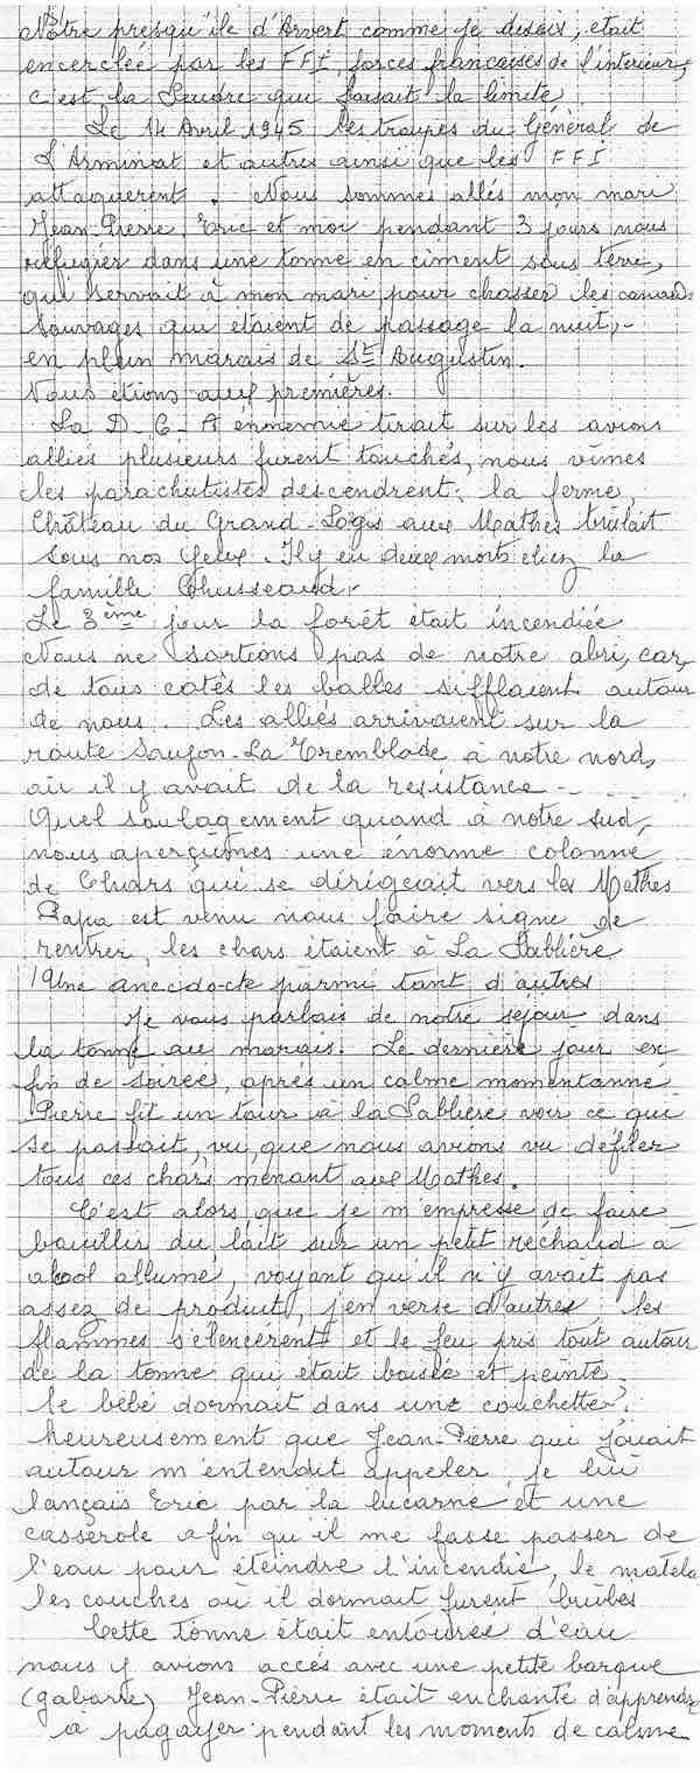 Notre presqu'ile d'Arvert comme je disais, etait
encerclée par les FFI, forces francaises de l'interieur,
c'est la Seudre qui faisait la limite
Le 14 Avril 1945 les troupes du Général de
L'Arminat et autres ainsi que les FFI
attaquerent. Nous sommes allés mon mari
Jean-Pierre, Eric et moi pendant 3 jours nous
refugier dans une tonne en ciment sous terre,
qui servait à mon mari pour chasser les canards
sauvages qui étaient de passage la nuit,-
en plein marais de St Augustin.
Nous étions aux premières.
La D-C-A énnemie tirait sur les avions
alliés plusieurs furent touchés, nous vîmes
les parachutistes descendrent, la ferme,
Château du Grand-Logis aux Mathes brûlait
sous nos yeux. Il y eu deux morts chez la
famille Chusseaud.
Le 3ème jour la forêt était incendiée
Nous ne sortions pas de notre abri, car,
de tous cotés les balles sifflaient autour
de nous. Les alliés arrivaient sur la
route Saujon-La Tremblade à notre nord,
où il y avait de la resistance -
Quel soulagement quand à notre sud,
nous aperçûmes une énorme colonne
de Chars qui se dirigeait vers les Mathes
Papa est venu nous faire signe de
rentrer, les chars étaient à La Sablière
Une anecdocte parmi tant d'autres
Je vous parlais de notre séjour dans
la tonne au marais. Le dernière jour en
fin de soirée, après un calme momentanné
Pierre fit un tour à la Sablière voir ce qui
se passait, vu que nous avions vu défiler
tous ces chars menant aux Mathes.
C'est alors que je m'empresse de faire
bouillir du lait sur un petit réchaud à
alcool allumé, voyant qu'il n'y avait pas
assez de produit, j'en verse d'autres, les
flammes s'élencèrent et le feu pris tout autour
de la tonne qui était boisée et peinte.
le bébé dormait dans une couchette,
heureusement que Jean-Pierre qui jouait
autour m'entendit appeler, je lui
lançais Eric par la lucarne et une
casserole afin qu'il me fasse passer de
l'eau pour éteindre l'incendie, le matela
les couches où il dormait furent brûlés
Cette tonne était entourée d'eau
nous y avions accés avec une petite barque
(gabare) Jean-Pierre était enchanté d'apprendre
à pagayer pendant les moments de calme